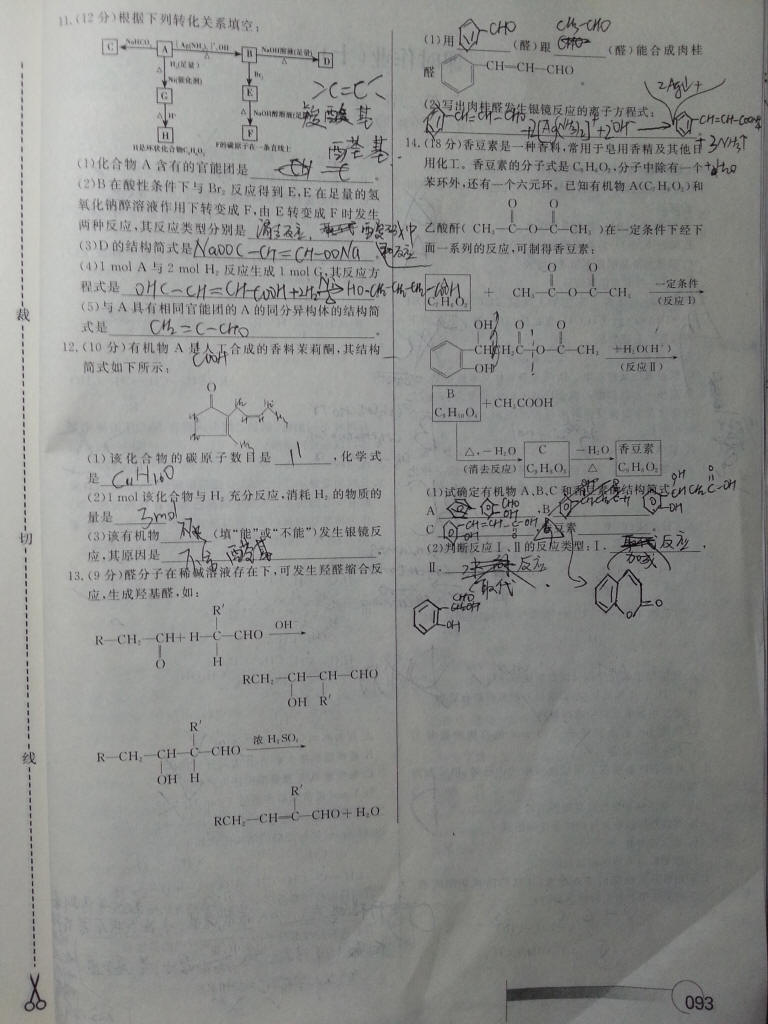 11.(12分)根据下列转化关系填空:
C NaHCO₃ A [Ag(NH₃)₂]⁺,OH⁻ △ B NaOH溶液(足量) △ D
H₂(足量) Ni(催化剂) △
Br₂
G E
H⁺ △ NaOH醇溶液(足量) △
H F
H是环状化合物C₄H₆O₂ F的碳原子在一条直线上
>C=C<
醛基
羧基
(1)化合物A含有的官能团是
(2)B在酸性条件下与Br₂反应得到E,E在足量的氢
氧化钠醇溶液作用下转变成F,由E转变成F时发生
两种反应,其反应类型分别是 消去反应,
(3)D的结构简式是NaOOC-CH=CH-OONa.
(4)1 mol A与2 mol H₂反应生成1 mol G,其反应方
程式是 OHC-CH=CH-COOH+2H₂ Ni △ HO-CH₂-CH₂-CH₂-COOH
(5)与A具有相同官能团的A的同分异构体的结构简
式是 CH₂=C-CHO 。
COOH
12.(10分)有机物A是人工合成的香料茉莉酮,其结构
简式如下所示:
O
(1)该化合物的碳原子数目是 11 ,化学式
是 C₁₁H₁₆O
(2)1 mol该化合物与H₂充分反应,消耗H₂的物质的
量是 3mol
(3)该有机物 不能 (填“能”或“不能”)发生银镜反
应,其原因是 不含醛基 。
13.(9分)醛分子在稀碱溶液存在下,可发生羟醛缩合反
应,生成羟基醛,如:
R′
R—CH₂—CH+H—C—CHO OH⁻
O H
RCH₂—CH—CH—CHO
OH R′
R′
R—CH₂—CH—C—CHO 浓H₂SO₄
OH H
R′
RCH₂—CH=C—CHO+H₂O
(1)用 CHO (醛)跟 CH₃-CHO (醛)能合成肉桂
醛 CH=CH—CHO
(2)写出肉桂醛发生银镜反应的离子方程式:
2Ag↓+
CH=CH-CHO +2[Ag(NH₃)₂]⁺+2OH⁻ CH=CH-COONH₄
+3NH₃↑
+H₂O
14.(18分)香豆素是一种香料,常用于皂用香精及其他日
用化工。香豆素的分子式是C₉H₆O₂,分子中除有一个
苯环外,还有一个六元环。已知有机物A(C₇H₆O₂)和
O O
乙酸酐(CH₃—C—O—C—CH₃)在一定条件下经下
面一系列的反应,可制得香豆素:
O O
C₇H₆O₂ + CH₃—C—O—C—CH₃ 一定条件 (反应Ⅰ)
OH O O
CHCH₂C—O—C—CH₃ +H₂O(H⁺) (反应Ⅱ)
OH
B
C₉H₁₀O₄ +CH₃COOH
△,−H₂O (消去反应) C C₉H₈O₃ −H₂O △ 香豆素 C₉H₆O₂
(1)试确定有机物A、B、C和香豆素的结构简式:
A CHO OH ,B
OH O
CHCH₂C-OH
OH
C CH=CH-C-OH OH ,香豆素 。
(2)判断反应Ⅰ、Ⅱ的反应类型:Ⅰ. 反应,
加成
Ⅱ. 反应.
取代
CHO
OH
O O
裁
切
线
093